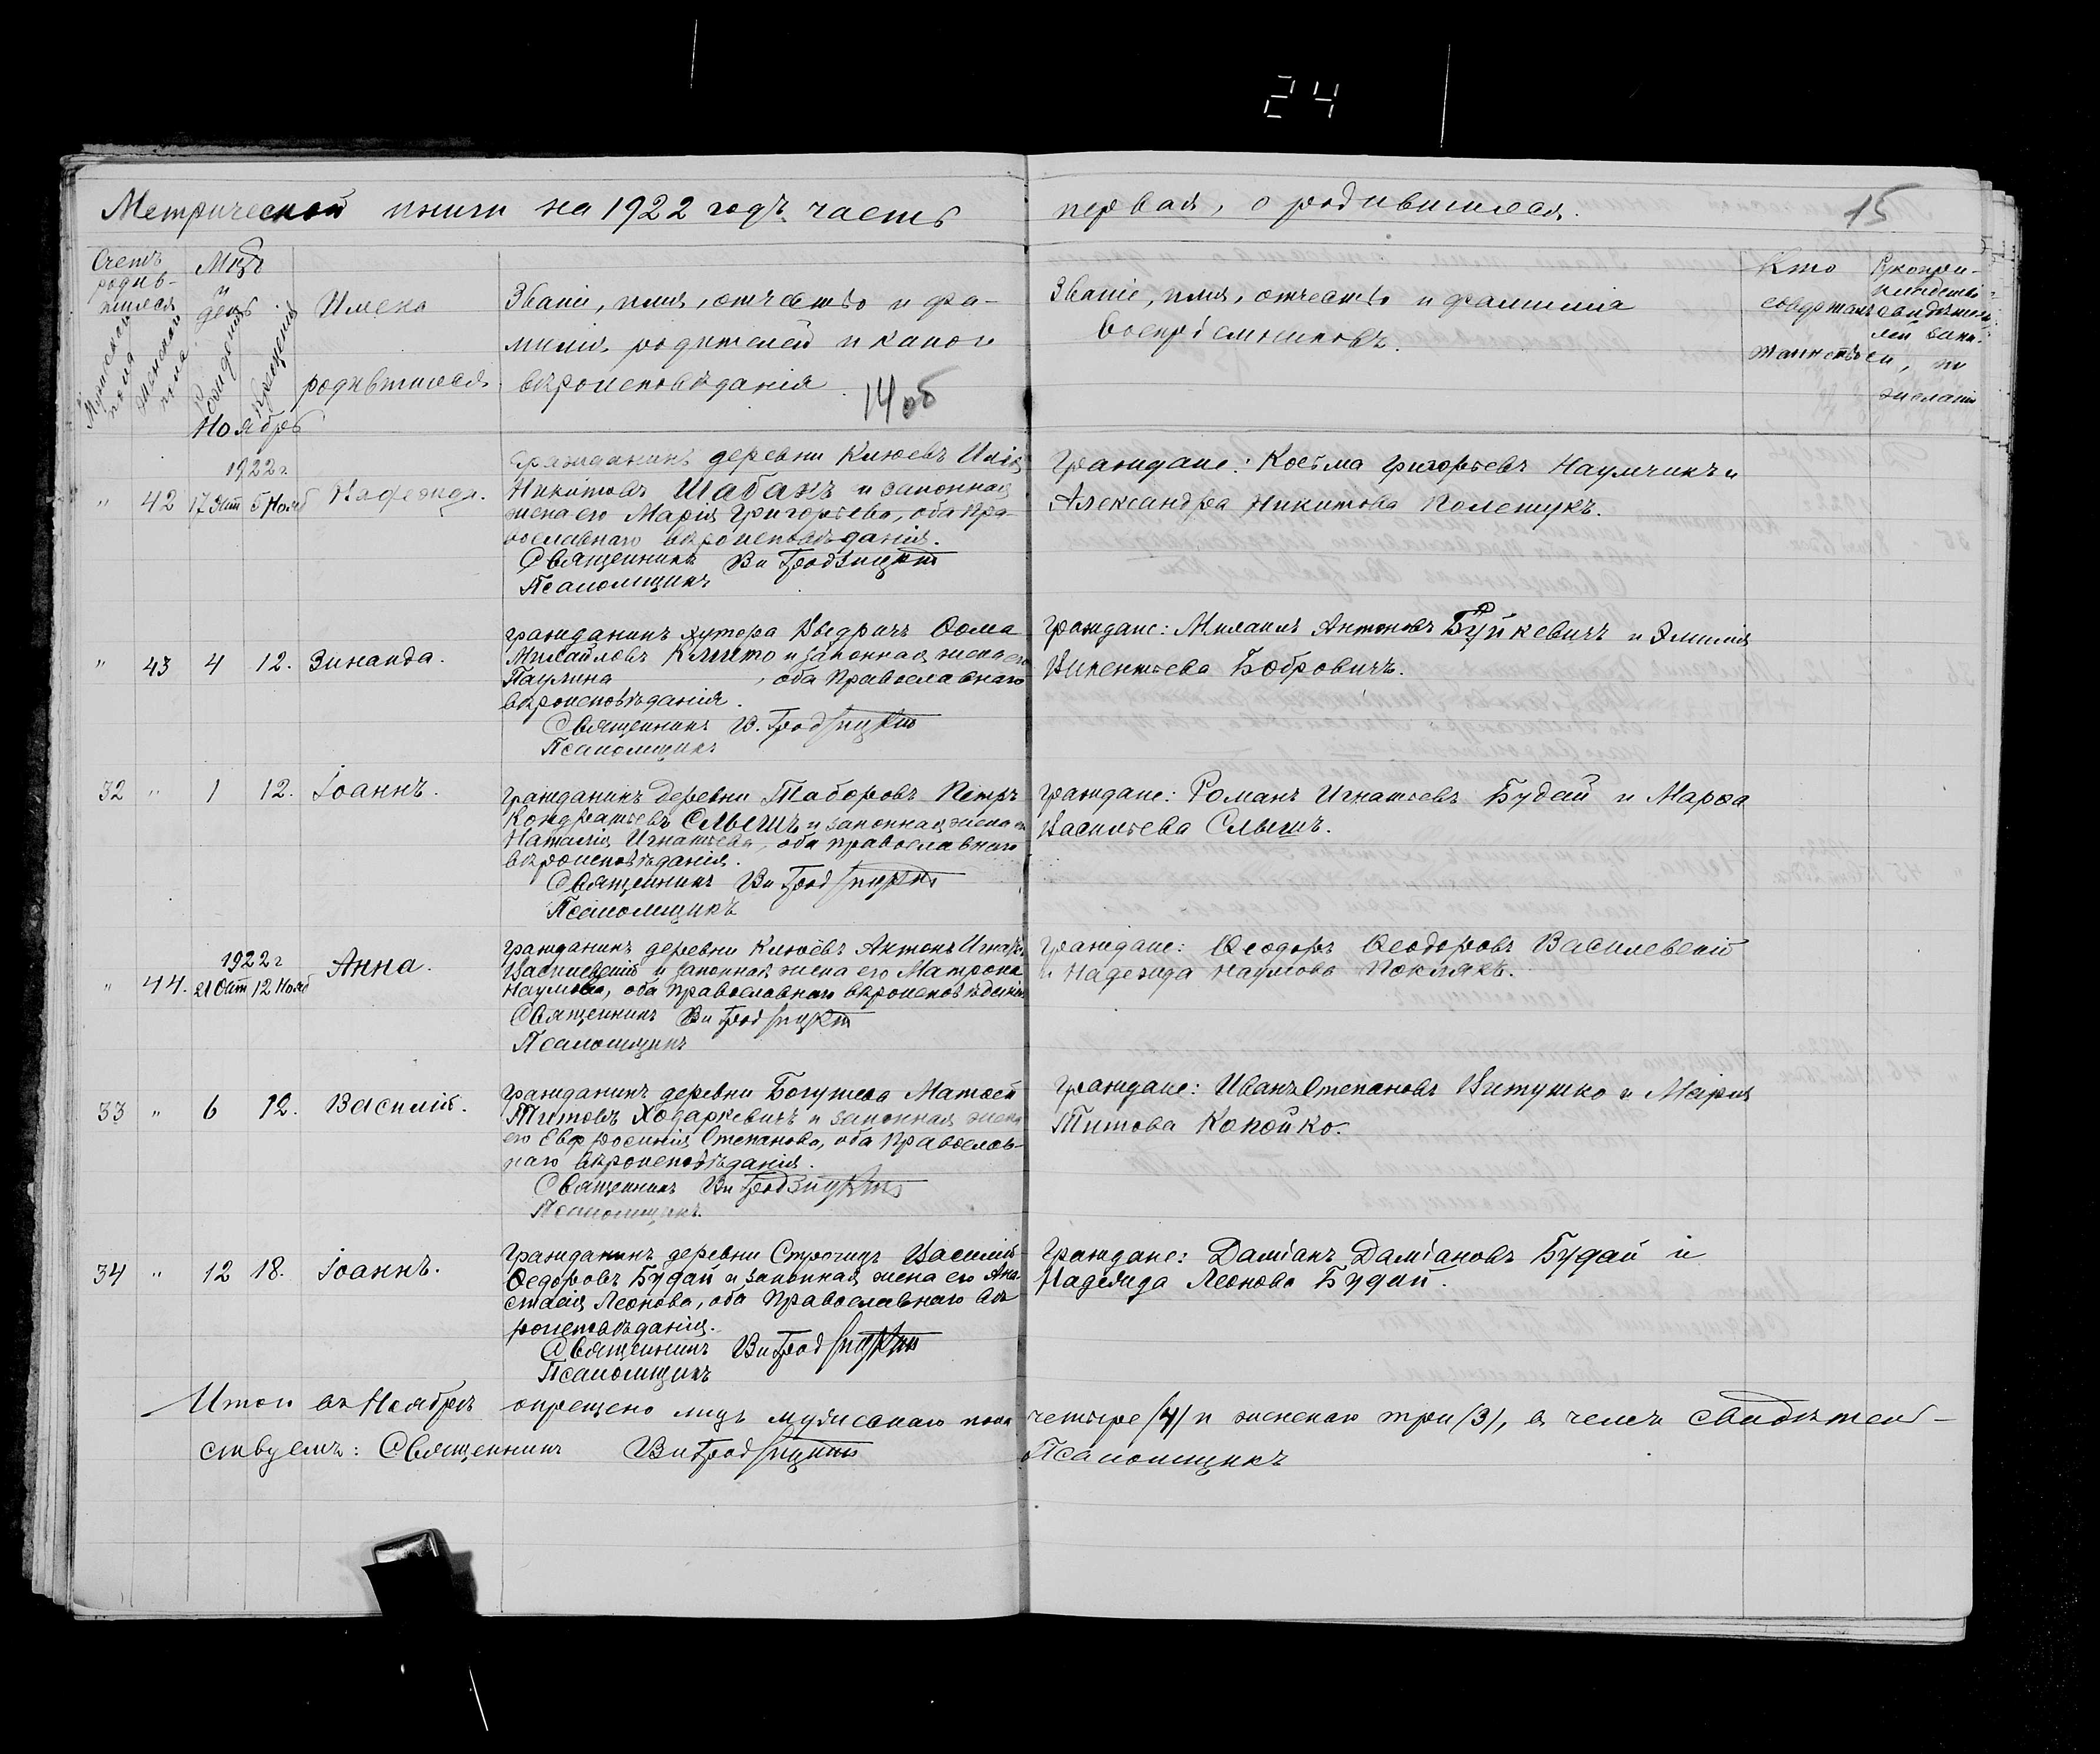 24
Метрической книги на 1922 годъ часть первая, о родившихся.
15
Счетъ родив-шихся
Мужескаго пола
Женскаго пола
Мцъ и день
Рожденія
Крещенія
Имена родившихся
Званіе, имя, отчество и фа-
милія родителей и какого
вѣроисповѣданія
14 об
Званіе, имя, отчество и фамилія
воспріемниковъ.
Кто
совершалъ
таинство
Рукопри-
кладство
свидѣтелей
записи, по
желанію
Ноябрь
1922 г.
" 42 17 Окт 5 Нояб Надежда.
Гражданинъ деревни Клюевъ Илія
Никитовъ Шабанъ и законная
жена его Марія Григорьева, оба пра-
вославнаго вѣроисповѣданія.
Священникъ
Псаломщикъ
Граждане: Косьма Григорьевъ Наумчикъ и
Александра Никитова Полещукъ.
" 43 4 12. Зинаида.
Гражданинъ хутора Ѳома
Михайловъ и законная жена его
Паулина , оба Православнаго
вѣроисповѣданія.
Священникъ
Псаломщикъ
Граждане: Михаилъ Антоновъ Буйкевичъ и Эмилія
Викентьева Бобровичъ.
32 " 1 12. Іоаннъ.
Гражданинъ деревни Таборовъ Петръ
Кондратьевъ Слышъ и законная жена его
Наталія Игнатьева, оба православнаго
вѣроисповѣданія.
Священникъ
Псаломщикъ
Граждане: Романъ Игнатьевъ Будай и Марѳа
Васильева Слышъ.
1922 г
" 44. 21 Окт 12 Нояб Анна.
Гражданинъ деревни Клюевъ Антонъ
Василевскій и законная жена его Матрона
Наумова, оба Православнаго вѣроисповѣданія
Священникъ
Псаломщикъ
Граждане: Ѳеодоръ Ѳеодоровъ Василевскій
и Надежда Наумова Поклякъ.
33 " 6 12. Василій.
Гражданинъ деревни Богушева Матѳей
Титовъ Ходаркевичъ и законная жена
его Евфросинія Степанова, оба Православ-
наго вѣроисповѣданія.
Священникъ
Псаломщикъ.
Граждане: Иванъ Степановъ Витушко и Марія
Титова Копойко.
34 " 12 18. Іоаннъ.
Гражданинъ деревни Василій
Ѳедоровъ Будай и законная жена его Ана-
стасія Леонова, оба Православнаго вѣ-
роисповѣданія.
Священникъ
Псаломщикъ
Граждане: Даміанъ Даміановъ Будай и
Надежда Леонова Будай.
Итого въ Ноябрѣ окрещено лицъ мужескаго пола четыре /4/ и женскаго три /3/, въ чемъ свидѣтель-
ствуемъ: Священникъ Псаломщикъ